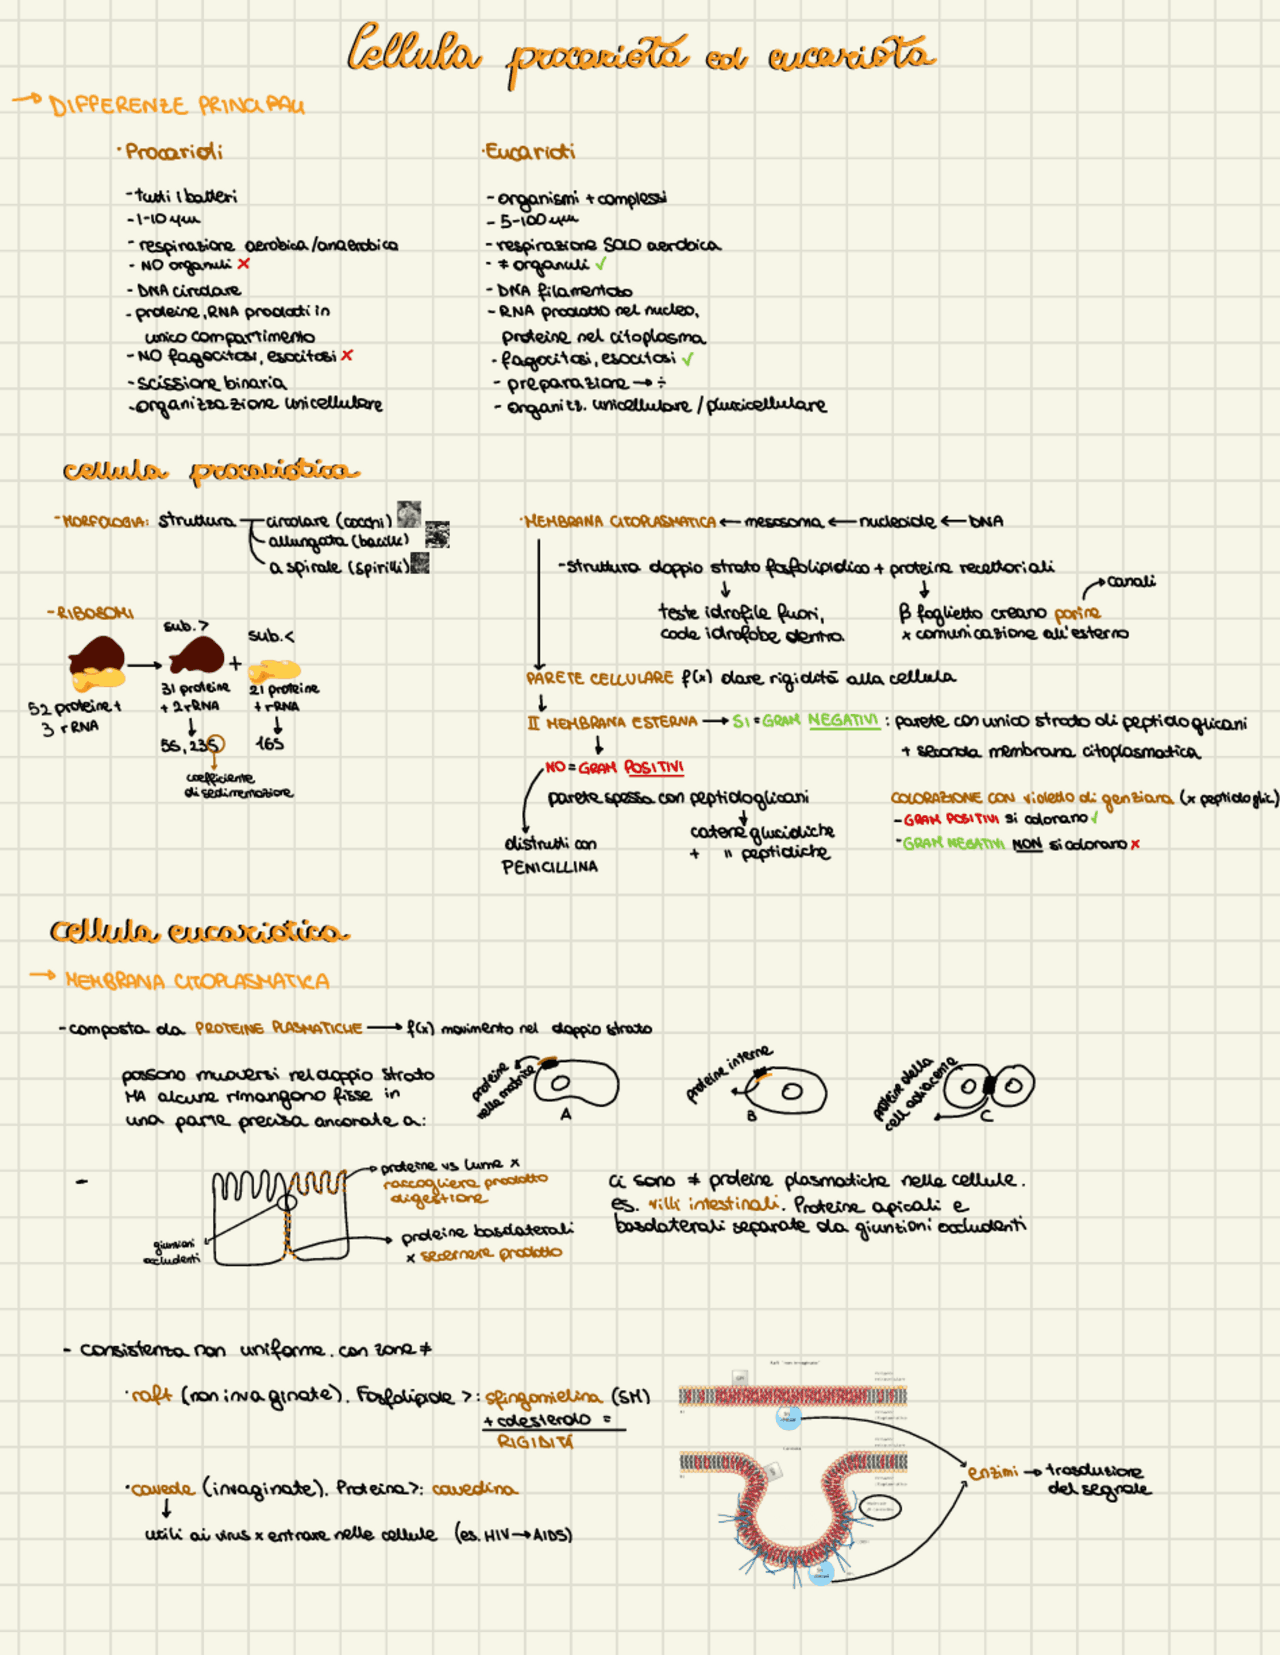 Cellula procariota ed eucariota
→ DIFFERENZE PRINCIPALI
· Procarioti
- tutti i batteri
- 1-10 µm
- respirazione aerobica/anaerobica
- NO organuli ✗
- DNA circolare
- proteine, RNA prodotti in
unico compartimento
- NO fagocitosi, esocitosi ✗
- scissione binaria
- organizzazione unicellulare
· Eucarioti
- organismi + complessi
- 5-100 µm
- respirazione SOLO aerobica
- ≠ organuli ✓
- DNA filamentoso
- RNA prodotto nel nucleo,
proteine nel citoplasma
- fagocitosi, esocitosi ✓
- preparazione → ÷
- organizz. unicellulare / pluricellulare
cellula procariotica
- MORFOLOGIA: struttura
circolare (cocchi)
allungata (bacilli)
a spirale (spirilli)
- RIBOSOMI
sub. >
sub. <
+
52 proteine +
3 rRNA
31 proteine
+ 2 rRNA
↓
5S, 23S
coefficiente
di sedimentazione
21 proteine
+ rRNA
↓
16S
· MEMBRANA CITOPLASMATICA ← mesosoma ← nucleoide ← DNA
- struttura doppio strato fosfolipidico + proteine recettoriali
teste idrofile fuori,
code idrofobe dentro
β foglietto creano porine
→ canali
x comunicazione all'esterno
PARETE CELLULARE f(x) dare rigidità alla cellula
II MEMBRANA ESTERNA → SI = GRAM NEGATIVI : parete con unico strato di peptidoglicani
+ seconda membrana citoplasmatica
NO = GRAM POSITIVI
parete spessa con peptidoglicani
distrutti con
PENICILLINA
catene glucidiche
+ " peptidiche
COLORAZIONE CON violetto di genziana (x peptidoglic.)
- GRAM POSITIVI si colorano ✓
- GRAM NEGATIVI NON si colorano ✗
Cellula eucariotica
→ MEMBRANA CITOPLASMATICA
- composta da PROTEINE PLASMATICHE → f(x) movimento nel doppio strato
possono muoversi nel doppio strato
MA alcune rimangono fisse in
una parte precisa ancorate a:
proteine
nella matrice
A
proteine interne
B
proteine della
cell adiacente
C
-
proteine vs lume x
raccogliere prodotto
digestione
giunzioni
occludenti
proteine basolaterali
x secernere prodotto
ci sono ≠ proteine plasmatiche nelle cellule.
es. villi intestinali. Proteine apicali e
basolaterali separate da giunzioni occludenti
- consistenza non uniforme. con zone ≠
· raft (non invaginate). Fosfolipide >: sfingomielina (SM)
+ colesterolo =
RIGIDITÀ
· caveole (invaginate). Proteina >: caveolina
↓
utili ai virus x entrare nelle cellule (es. HIV → AIDS)
enzimi → trasduzione
del segnale